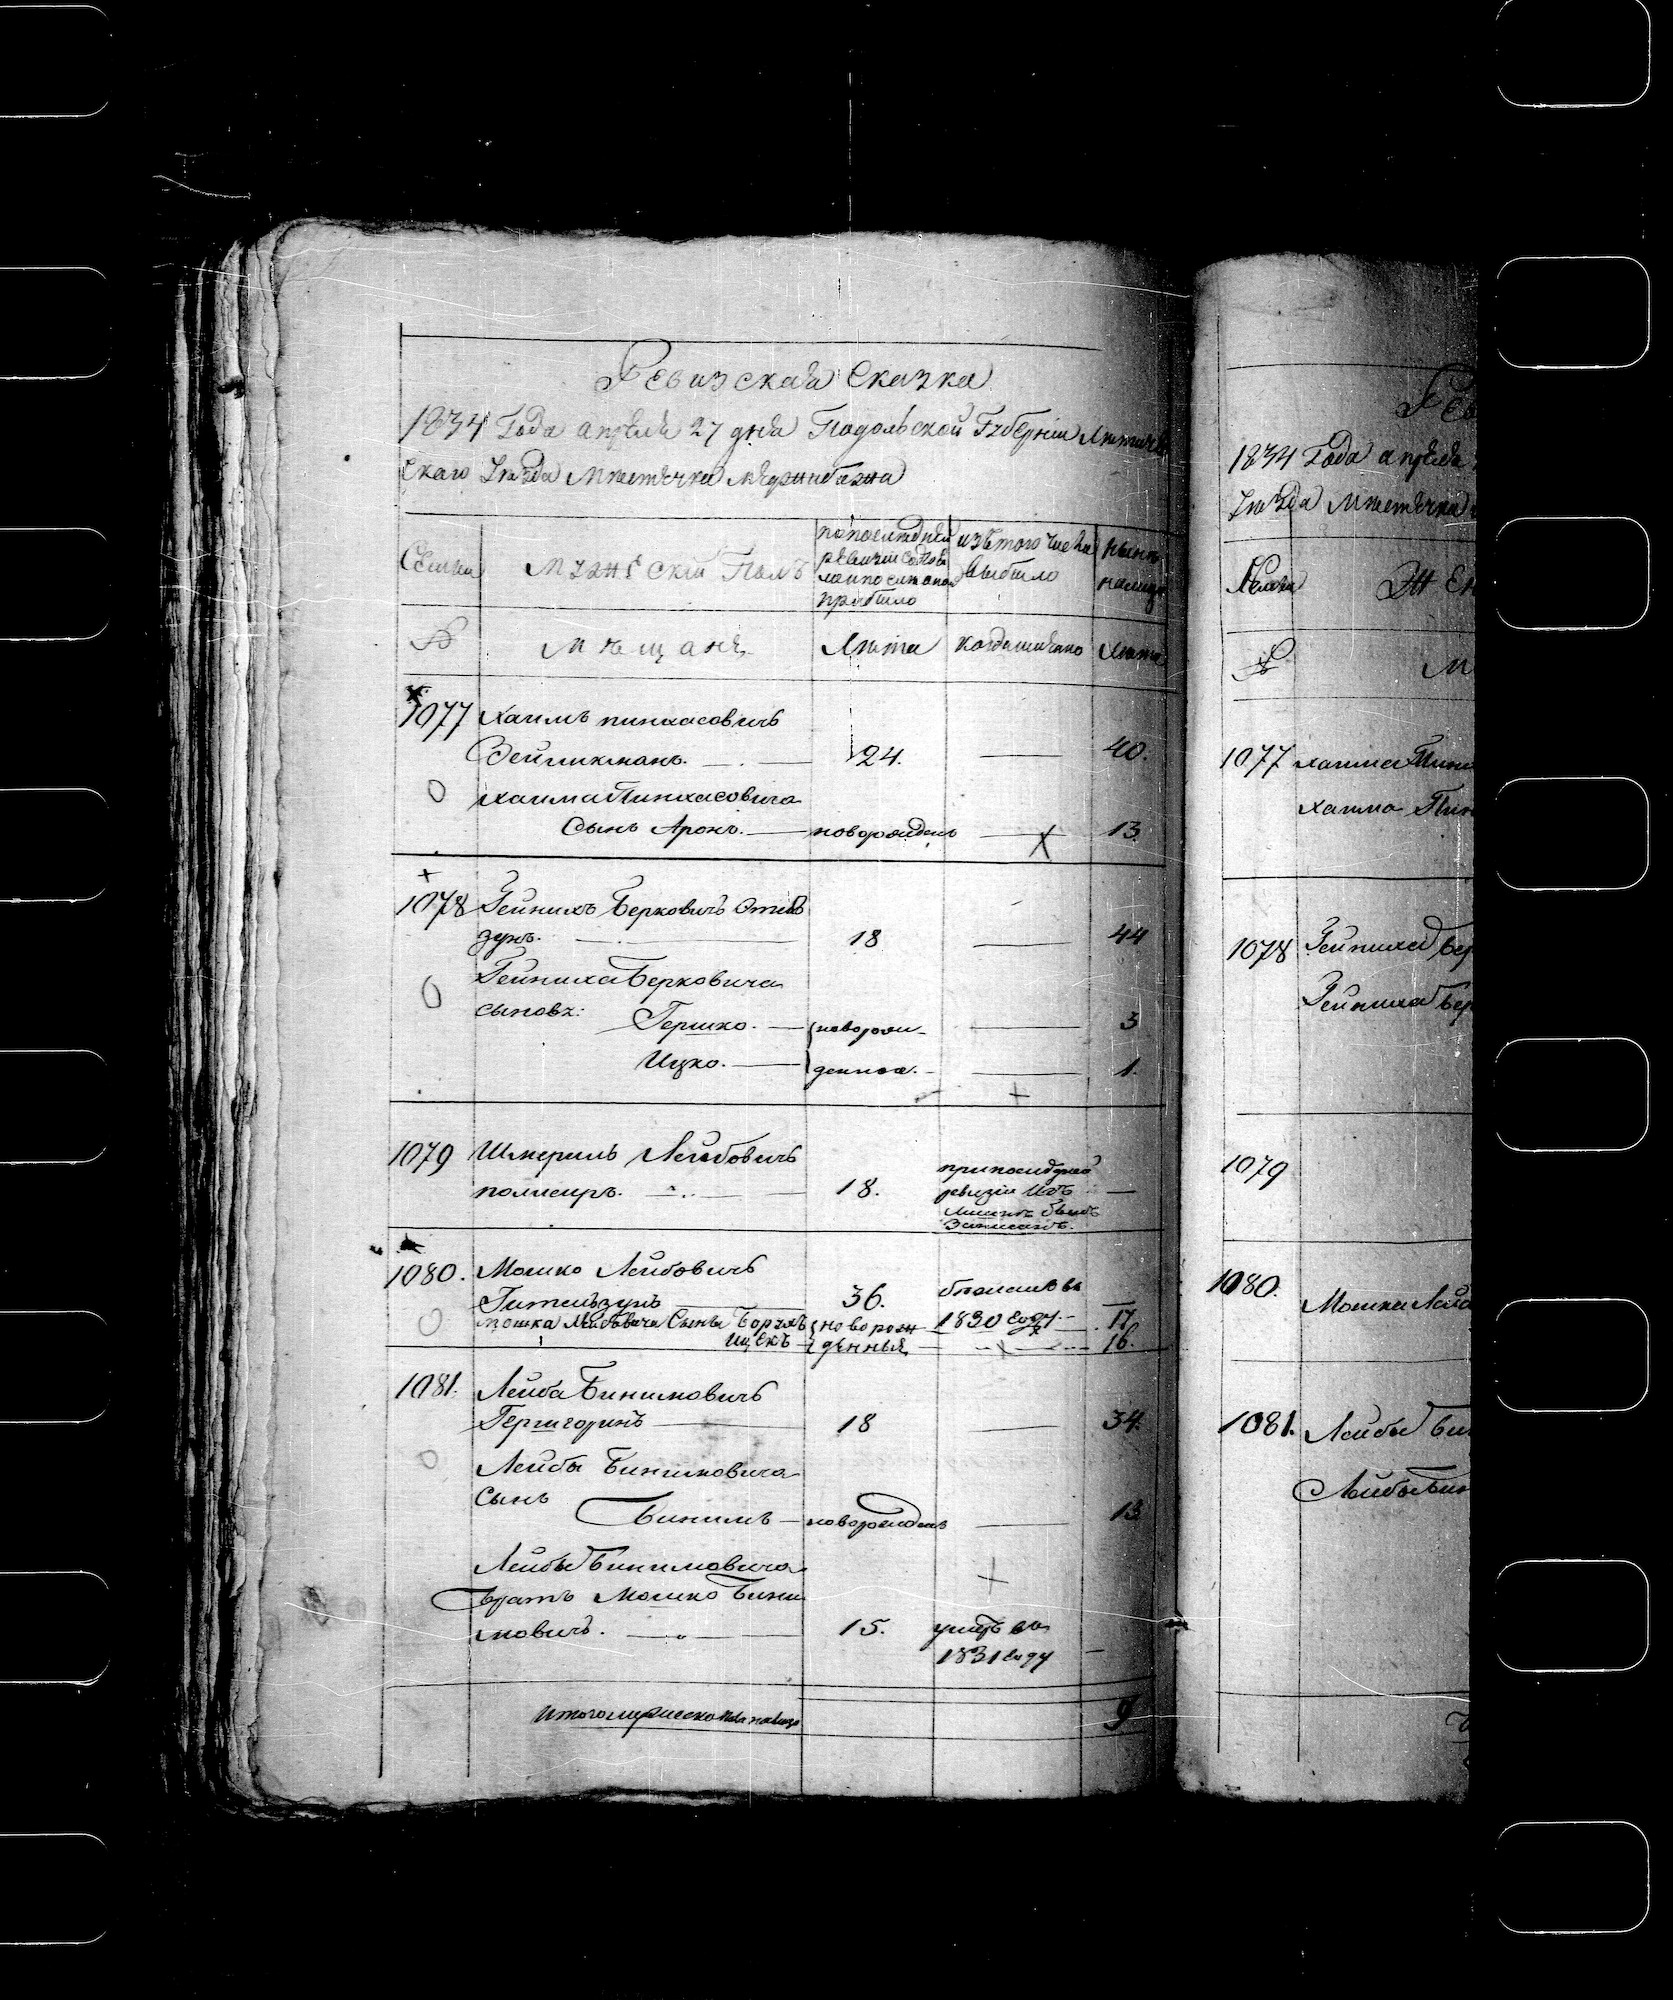 Ревизская Сказка
1834 Года апреля 27 дня Подольской Губернiи Литичев
скаго Уезда Местечка Меджибожа
Семьи
Мужескiй Полъ
по последней
ревизiи состо
яло и после оной
прибыло
изъ того числа
выбыло
ныне
на лицо
№
Мещане
Лета
Когда именно
Лета
1077 Хаимъ пинхасовичъ
Зейликманъ. — 24. — 40.
Хаима Пинхасовича
Сынъ Аронъ. — новорожденъ — 13
1078 Гейнихъ Берковичъ
зунъ. — 18 — 44
Гейниха Берковича
сыновья: Гершко. — новорож — 3
Ицко. — денные. — 1.
1079 Шмериль Лейбовичъ
18. —
ревизiи
записанъ.
1080. Мошко Лейбовичъ
Гительзунъ 36.
1830 году — 17
Мошка Лейбовича Сынъ Борухъ новорож
Ицекъ — денныя — 16.
1081. Лейба Бинимовичъ
18 — 34.
Лейбы Бинимовича
Сынъ
Бинимъ — новорожденъ — 13
Лейбы Бинимовича
Братъ Мошко Бини
мовичъ. — 15. умеръ въ
1831 году —
Итого мужеска пола на лицо 9
1834 Года апреля
Уезда Местечка
Семьи
Же
№
М
1077 Хаима Пин
Хаима Пин
1078 Гейниха Бер
Гейниха Бер
1079
1080.
Мошка Лейб
1081. Лейбы Бин
Лейбы Бин